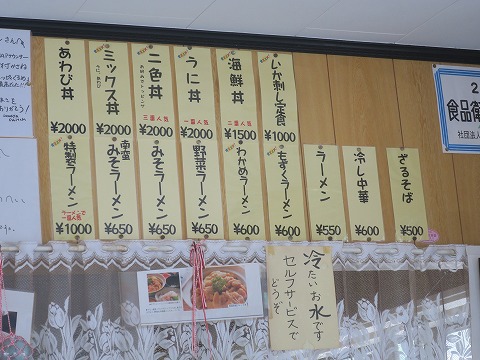 いか刺し定食
¥1000
海鮮丼
二番人気
¥1500
うに丼
一番人気
¥2000
二色丼
三番人気
¥2000
ミックス丼
うに、あわび
¥2000
あわび丼
¥2000
ざるそば
¥500
冷し中華
¥600
ラーメン
¥550
もずくラーメン
¥600
わかめラーメン
¥600
野菜ラーメン
¥650
みそラーメン
¥650
南蛮
みそラーメン
¥650
特製ラーメン
ラーメンで
一番人気
¥1000
冷たいお水です
セルフサービスで
どうぞ
食品衛
社団法人